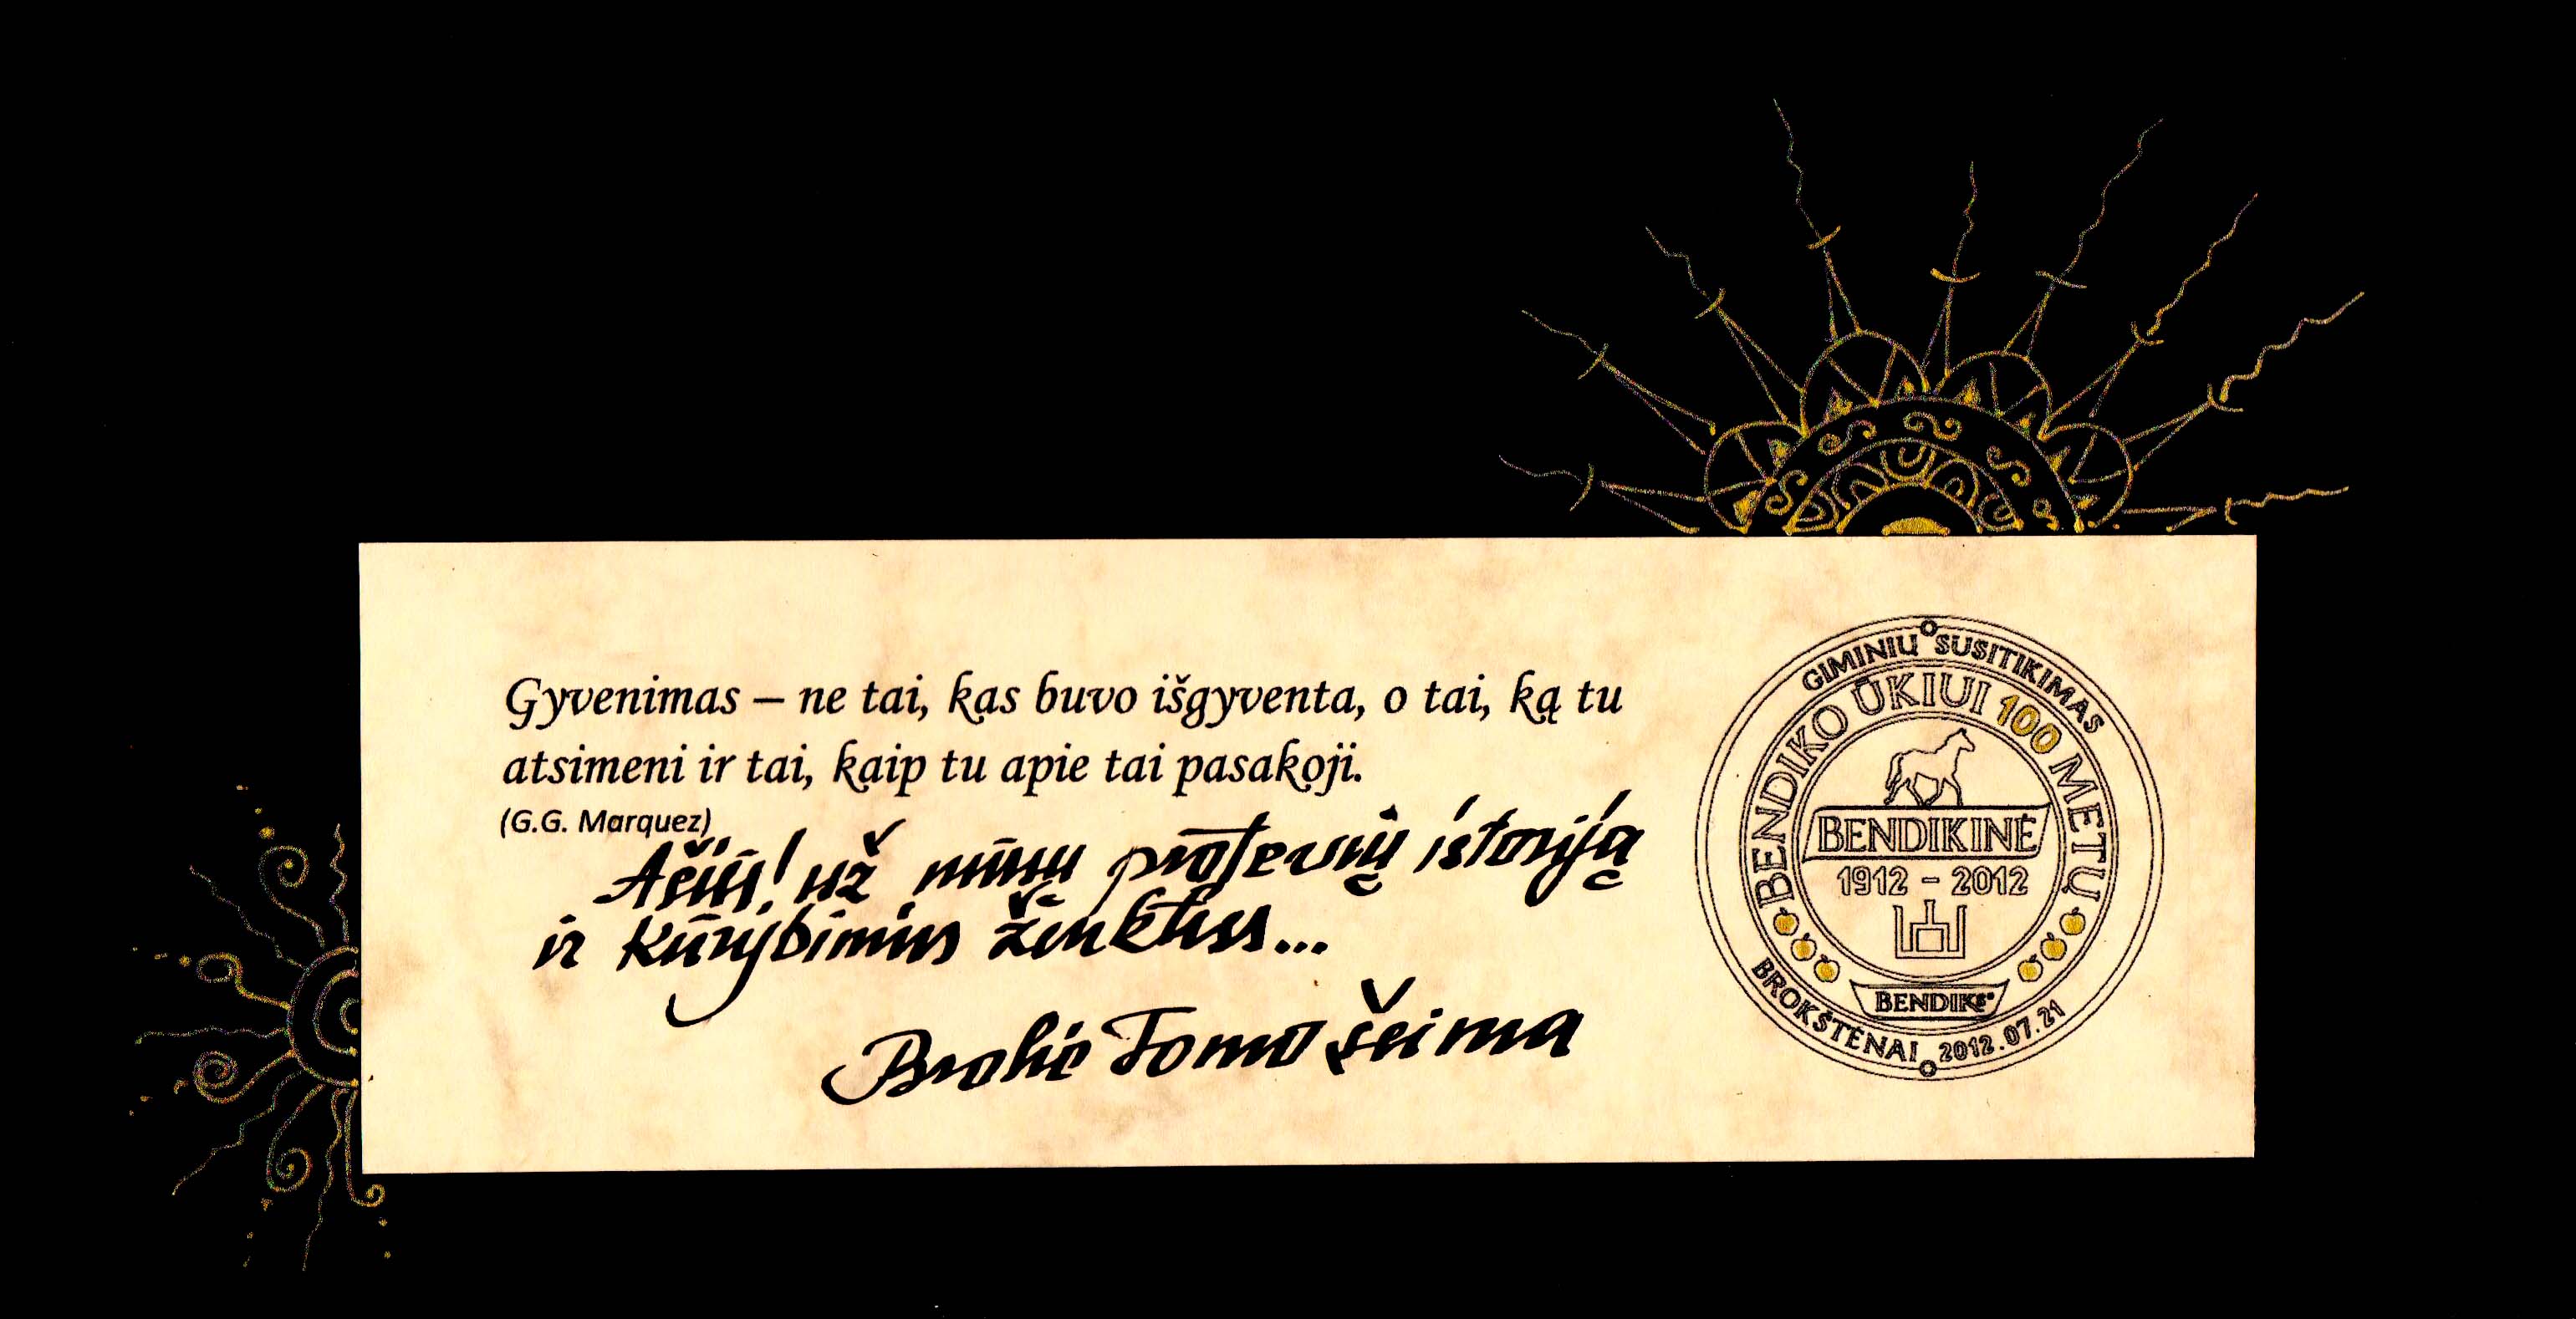 Gyvenimas – ne tai, kas buvo išgyventa, o tai, ką tu
atsimeni ir tai, kaip tu apie tai pasakoji.
(G.G. Marquez)
Ačiū! už mūsų protėvių istoriją
ir kūrybinius ženklus...
Brolio Tomo šeima
GIMINIŲ SUSITIKIMAS
BENDIKO ŪKIUI 100 METŲ
BENDIKINĖ
1912 – 2012
BENDIKS®
BROKŠTĖNAI 2012.07.21